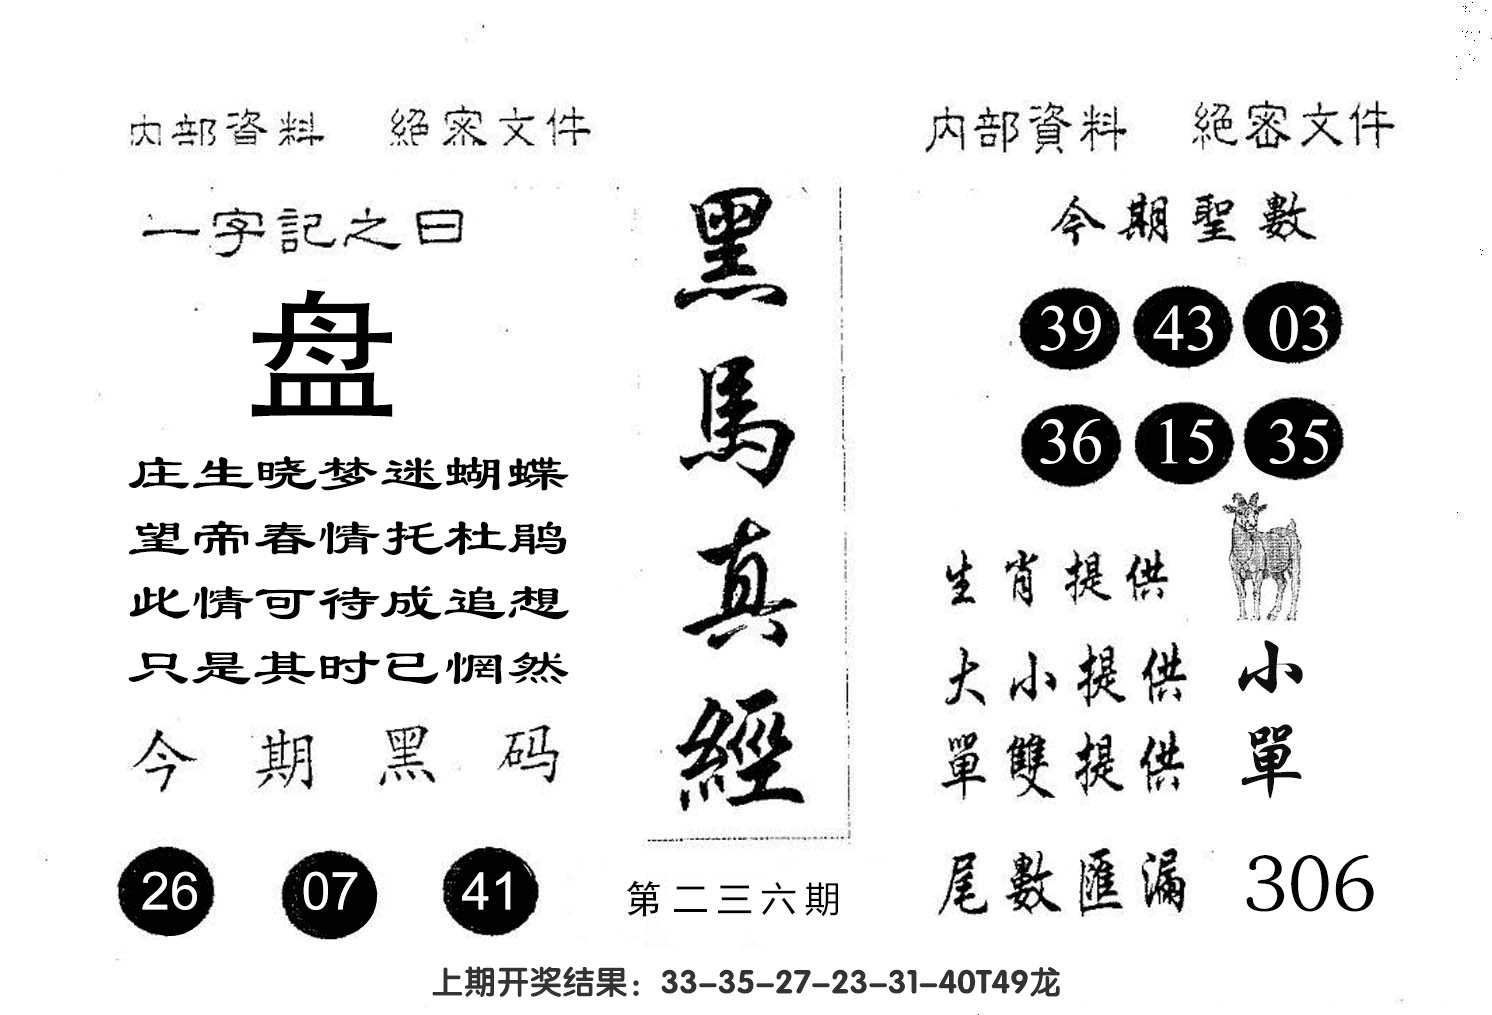 内部資料 絕密文件
一字記之曰
盘
庄生晓梦迷蝴蝶
望帝春情托杜鹃
此情可待成追想
只是其时已惘然
今期黑码
26 07 41
黑馬真經
第二三六期
内部資料 絕密文件
今期聖數
39 43 03
36 15 35
生肖提供
大小提供 小
單雙提供 單
尾數匯漏 306
上期开奖结果：33-35-27-23-31-40T49龙